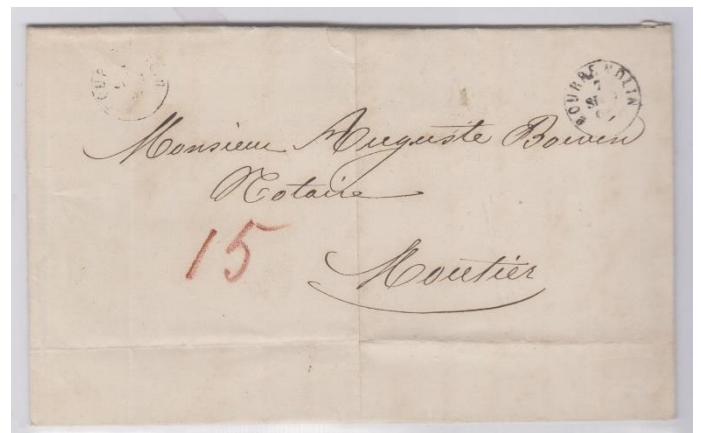 COURRENDLIN
Monsieur Auguste Boivin
Notaire
15
Moutier